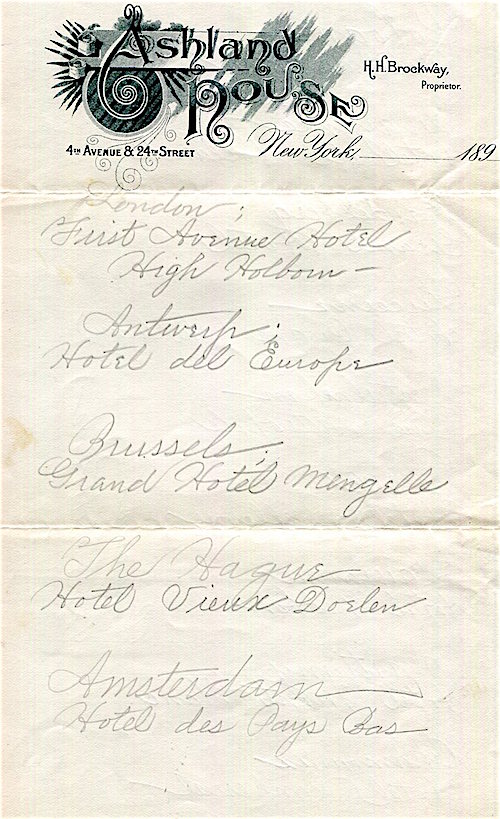 Ashland
House
H. H. Brockway,
Proprietor.
4TH AVENUE & 24TH STREET
New York, 189
London;
First Avenue Hotel
High Holborn –
Antwerp;
Hotel del Europe
Brussels;
Grand Hotel Mengelle
The Hague
Hotel Vieux Doelen
Amsterdam
Hotel des Pays Bas